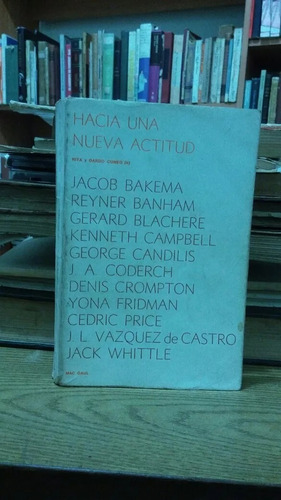 HACIA UNA
NUEVA ACTITUD
JACOB BAKEMA
REYNER BANHAM
GERARD BLACHERE
KENNETH CAMPBELL
GEORGE CANDILIS
J. A. CODERCH
DENIS CROMPTON
YONA FRIDMAN
CEDRIC PRICE
J. L. VAZQUEZ de CASTRO
JACK WHITTLE